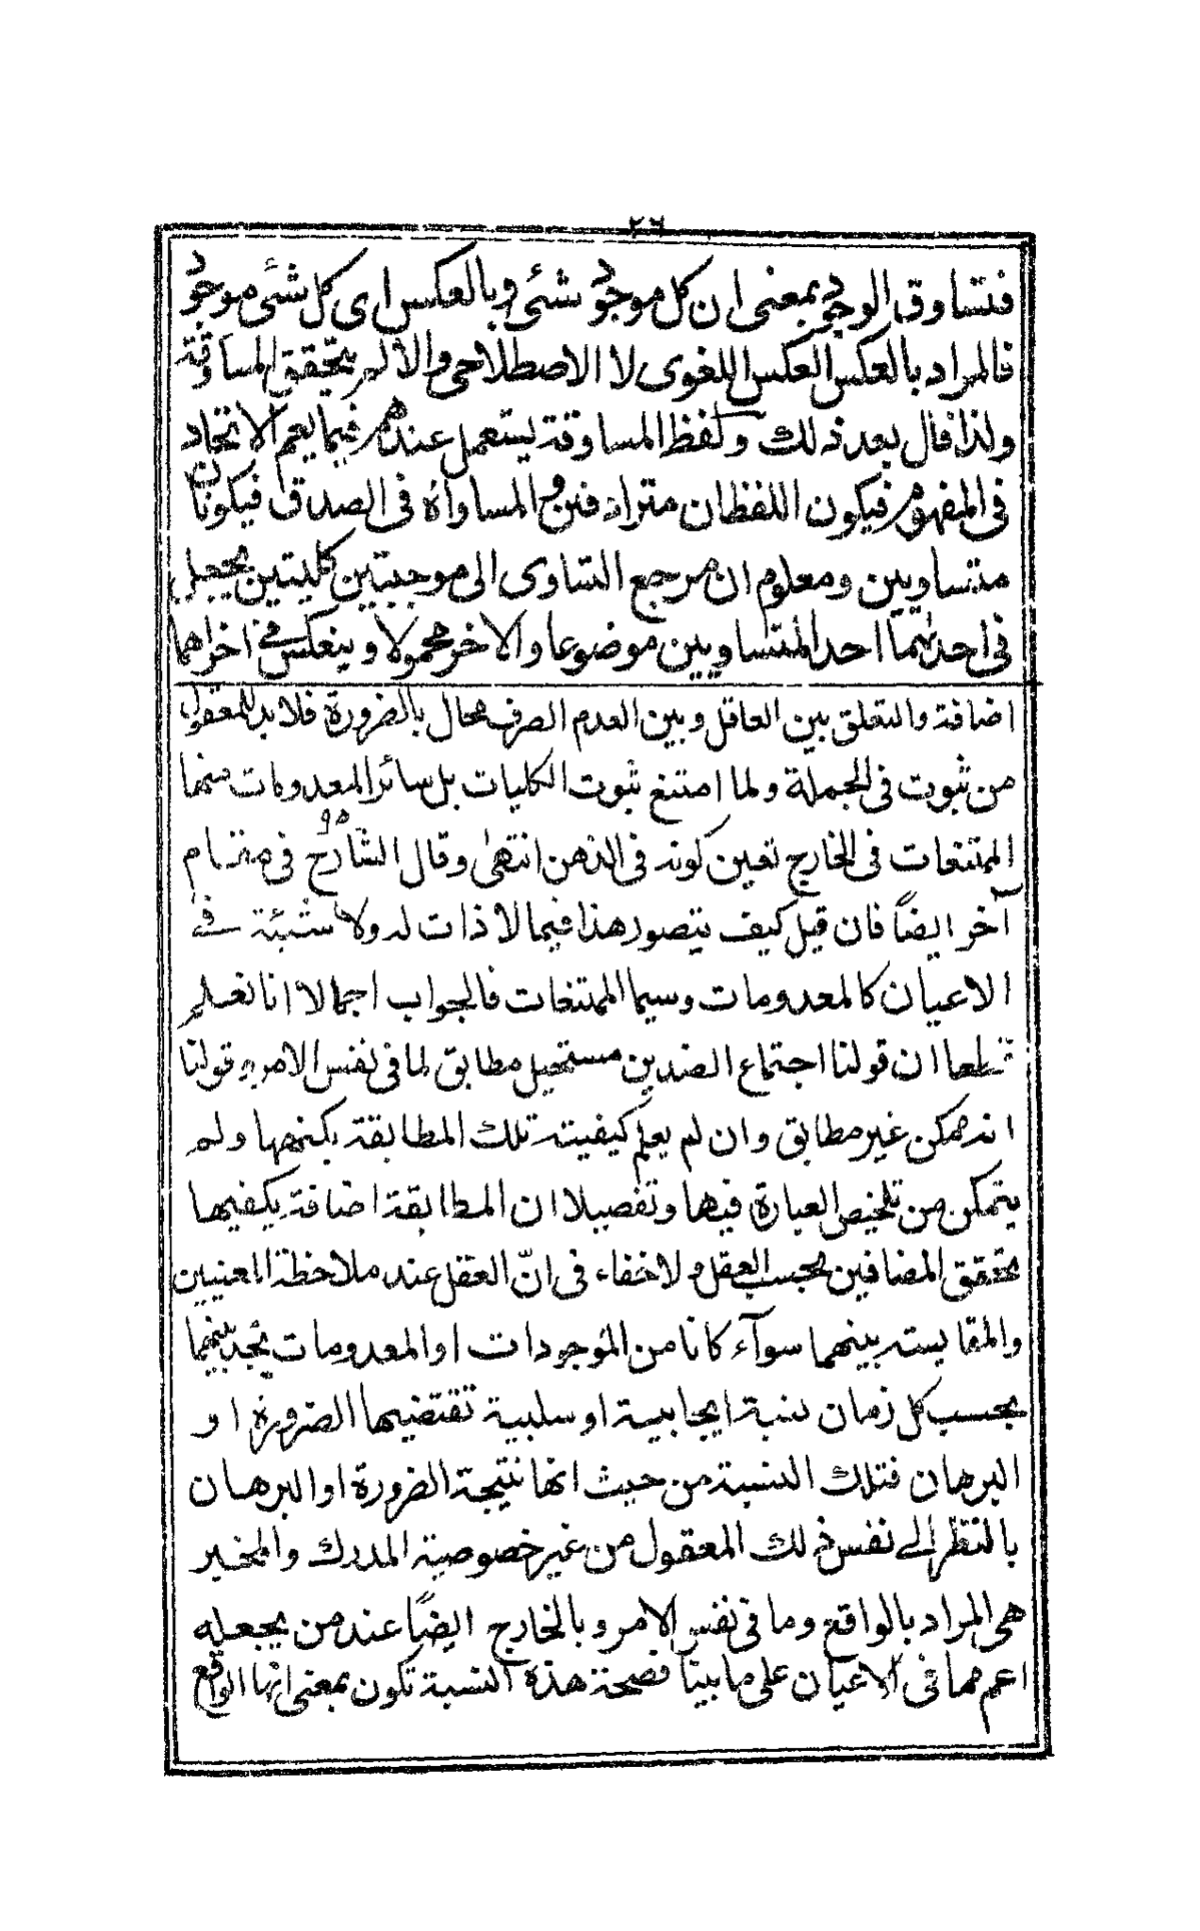 ٢٦
فتساوق الوجود بمعنى ان كل موجود شئ وبالعكس اى كل شئ موجود
فالمراد بالعكس العكس اللغوى لا الاصطلاحى والا لم يتحقق المساوقة
ولذا قال بعد ذلك ولفظ المساوقة يستعمل عندهم فيما يعم الاتحاد
فى المفهوم فيكون اللفظان مترادفين والمساواة فى الصدق فيكونان
متساويين ومعلوم ان مرجع التساوى الى موجبتين كليتين يجعل
فى احدٰهما احد المتساويين موضوعا والاخر محمولا وينعكس فى اخراهما
اضافة والتعلق بين العاقل وبين العدم الصرف محال بالضرورة فلا بد للمعقول
من ثبوت فى الجملة ولما امتنع ثبوت الكليات بل سائر المعدومات سيما
الممتنعات فى الخارج تعين كونه فى الذهن انتهٰى وقال الشارح فى مقام
آخر ايضاً فان قيل كيف يتصور هذا فيما لا ذات له ولا شيئية فے
الاعيان كالمعدومات وسيما الممتنعات فالجواب اجمالا انا نعلم
قطعا ان قولنا اجتماع الضدين مستحيل مطابق لما فى نفس الامر وقولنا
انه ممكن غير مطابق وان لم يعلم كيفيته تلك المطابقة بكنهها ولم
يتمكن من تلخيص العبارة فيها وتفصيلا ان المطابقة اضافة يكفيها
تحقق المضافين بحسب العقل ولا خفاء فى انّ العقل عند ملاحظة المعنيين
والمقايسته بينهما سوآء كانا من الموجودات او المعدومات يجد بينهما
بحسب كل زمان نسبة ايجابية او سلبية تقتضيها الضرورة او
البرهان فتلك النسبة من حيث انها نتيجة الضرورة او البرهان
بالنظر الے نفس ذلك المعقول من غير خصوصية المدرك والمخبر
هى المراد بالواقع وما فى نفس الامر وبالخارج ايضاً عند من يجعله
اعم مما فى الاعيان على ما بينا فصحة هذه النسبة تكون بمعنى انها الواقع